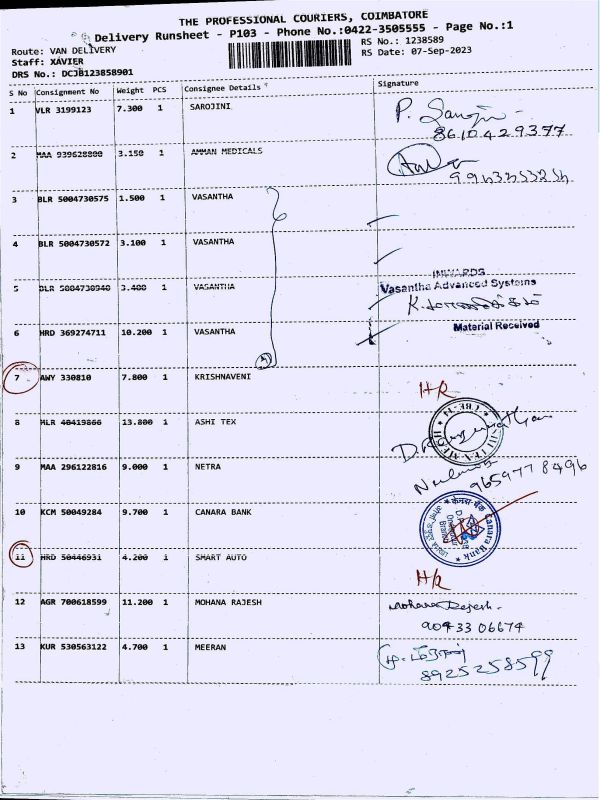 THE PROFESSIONAL COURIERS, COIMBATORE
Delivery Runsheet - P103 - Phone No.:0422-3505555 - Page No.:1
Route: VAN DELIVERY
Staff: XAVIER
DRS No.: DCJB123858901
RS No.: 1238589
RS Date: 07-Sep-2023
S No Consignment No Weight PCS Consignee Details Signature
1 VLR 3199123 7.300 1 SAROJINI
8610429377
2 MAA 939628800 3.150 1 AMMAN MEDICALS
3 BLR 5004730575 1.500 1 VASANTHA
4 BLR 5004730572 3.100 1 VASANTHA
5 BLR 5004730940 3.400 1 VASANTHA
INWARDS
Vasantha Advanced Systems
Material Received
6 HRD 369274711 10.200 1 VASANTHA
7 AWY 330810 7.800 1 KRISHNAVENI
8 MLR 40419866 13.800 1 ASHI TEX
9 MAA 296122816 9.000 1 NETRA
9659778496
10 KCM 50049284 9.700 1 CANARA BANK
केनरा बैंक Canara Bank
11 HRD 50446931 4.200 1 SMART AUTO
12 AGR 700618599 11.200 1 MOHANA RAJESH
Mohana Rajesh.
90433 06674
13 KUR 530563122 4.700 1 MEERAN
8925258599